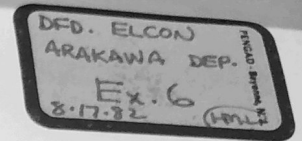 DFD. ELCON
ARAKAWA DEP.
Ex. 6
8·17·82
PENGAD-Bayonne, N.J.